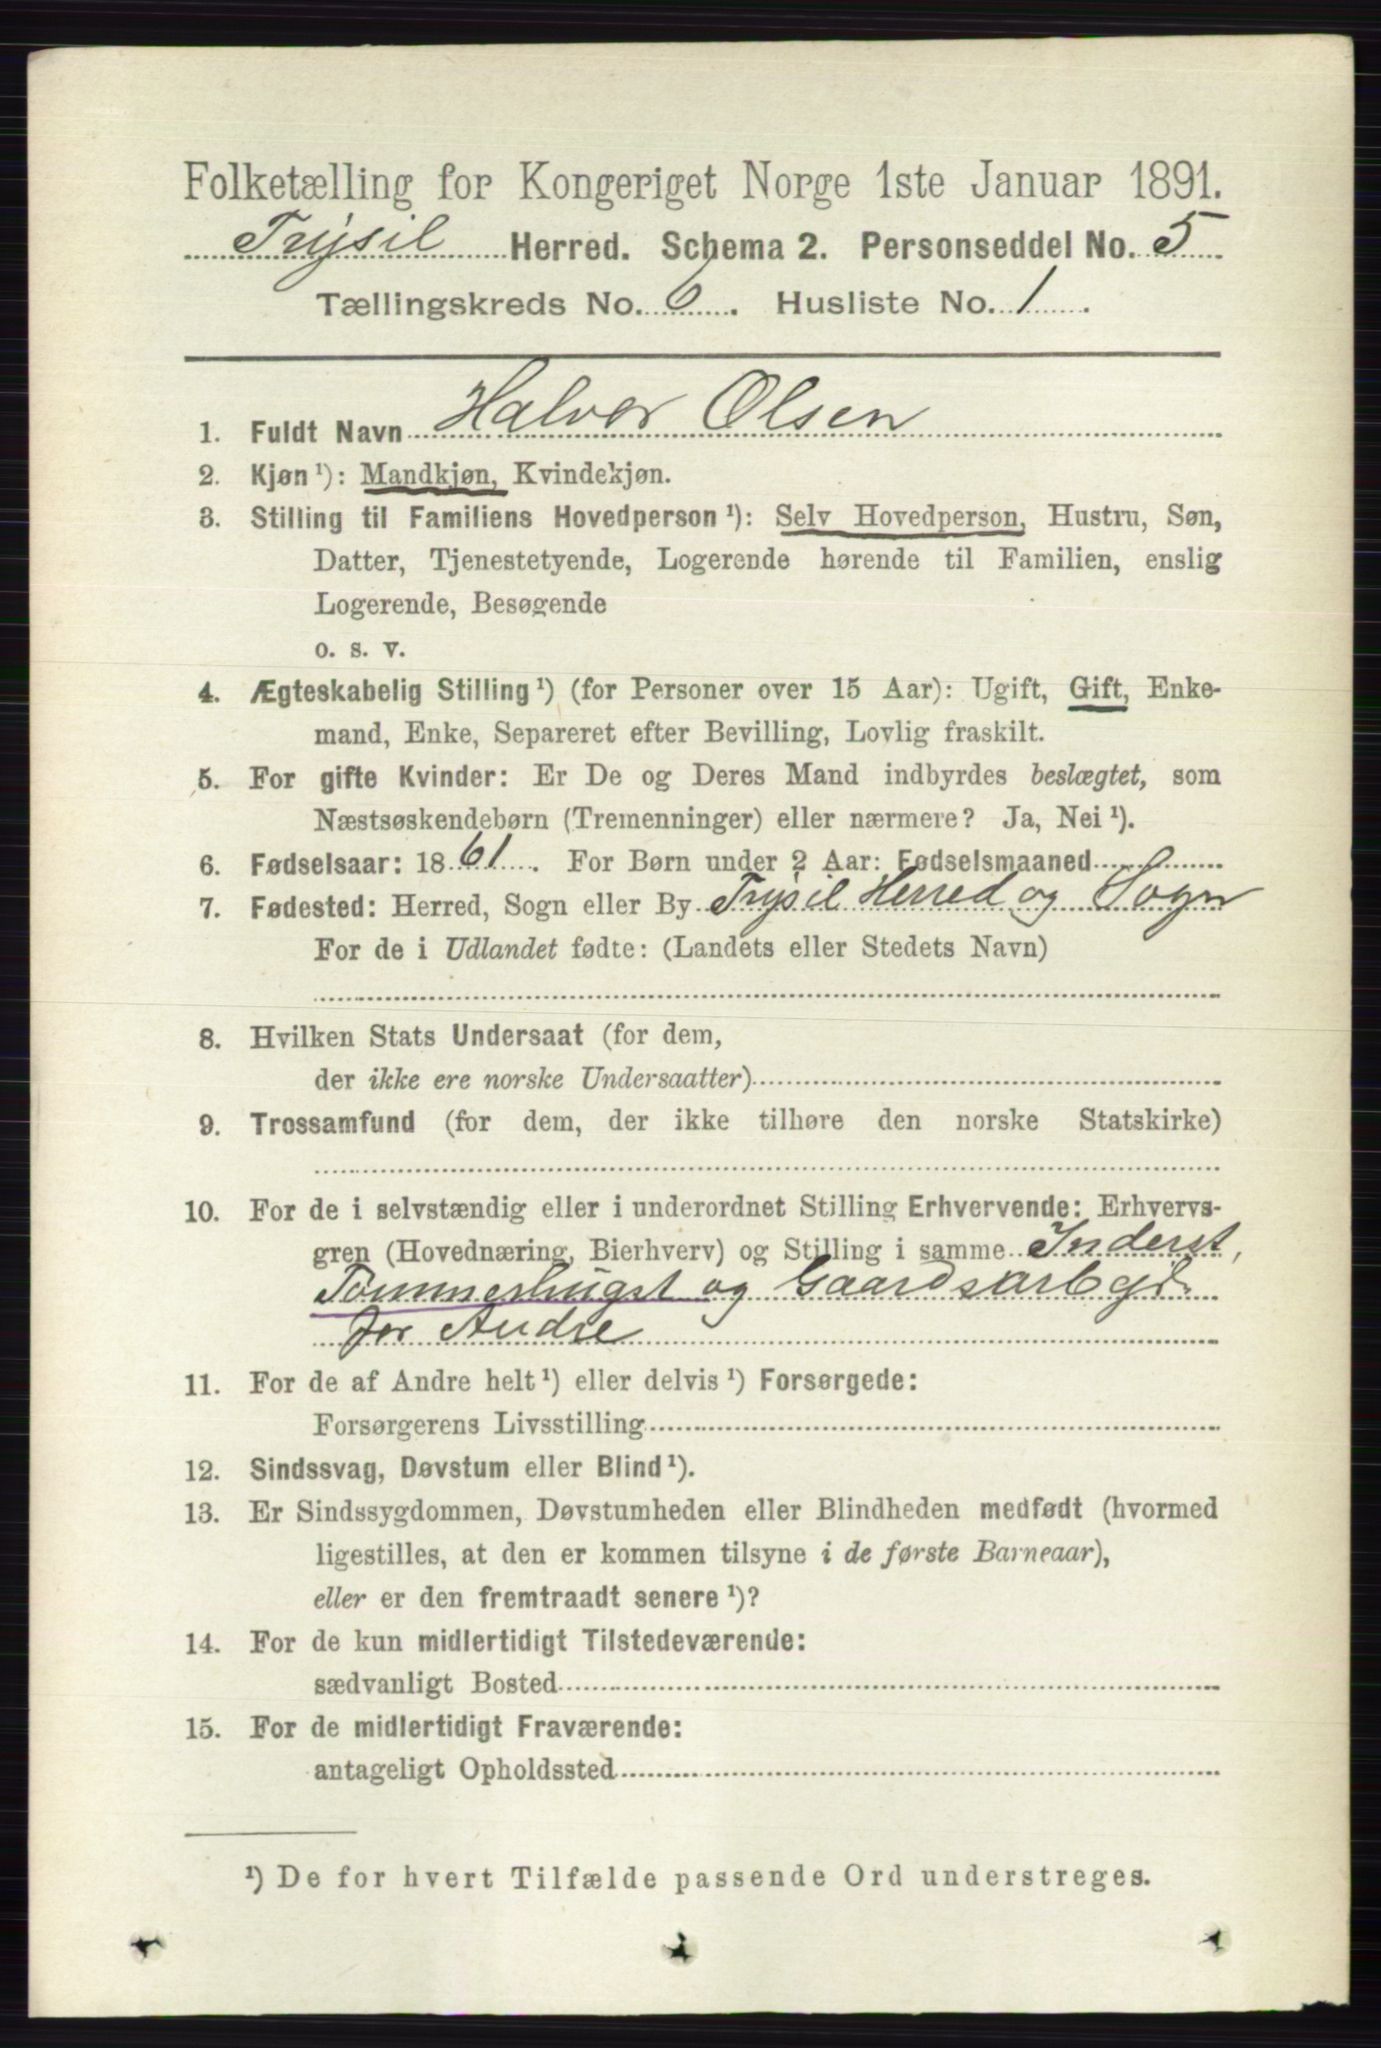 Folketælling for Kongeriget Norge 1ste Januar 1891.
Trysil Herred. Schema 2. Personseddel No. 5
Tællingskreds No. 6. Husliste No. 1.
1. Fuldt Navn Halvor Olsen
2. Kjøn ¹): Mandkjøn, Kvindekjøn.
3. Stilling til Familiens Hovedperson ¹): Selv Hovedperson, Hustru, Søn,
Datter, Tjenestetyende, Logerende hørende til Familien, enslig
Logerende, Besøgende
o. s. v.
4. Ægteskabelig Stilling ¹) (for Personer over 15 Aar): Ugift, Gift, Enke-
mand, Enke, Separeret efter Bevilling, Lovlig fraskilt.
5. For gifte Kvinder: Er De og Deres Mand indbyrdes beslægtet, som
Næstsøskendebørn (Tremenninger) eller nærmere? Ja, Nei ¹).
6. Fødselsaar: 1861. For Børn under 2 Aar: Fødselsmaaned
7. Fødested: Herred, Sogn eller By Trysil Herred og Sogn
For de i Udlandet fødte: (Landets eller Stedets Navn)
8. Hvilken Stats Undersaat (for dem,
der ikke ere norske Undersaatter)
9. Trossamfund (for dem, der ikke tilhøre den norske Statskirke)
10. For de i selvstændig eller i underordnet Stilling Erhvervende: Erhvervs-
gren (Hovednæring, Bierhverv) og Stilling i samme Inderst,
Tømmerhugst og Gaardsarbejd
for Andre
11. For de af Andre helt ¹) eller delvis ¹) Forsørgede:
Forsørgerens Livsstilling
12. Sindssvag, Døvstum eller Blind ¹).
13. Er Sindssygdommen, Døvstumheden eller Blindheden medfødt (hvormed
ligestilles, at den er kommen tilsyne i de første Barneaar),
eller er den fremtraadt senere ¹)?
14. For de kun midlertidigt Tilstedeværende:
sædvanligt Bosted
15. For de midlertidigt Fraværende:
antageligt Opholdssted
¹) De for hvert Tilfælde passende Ord understreges.